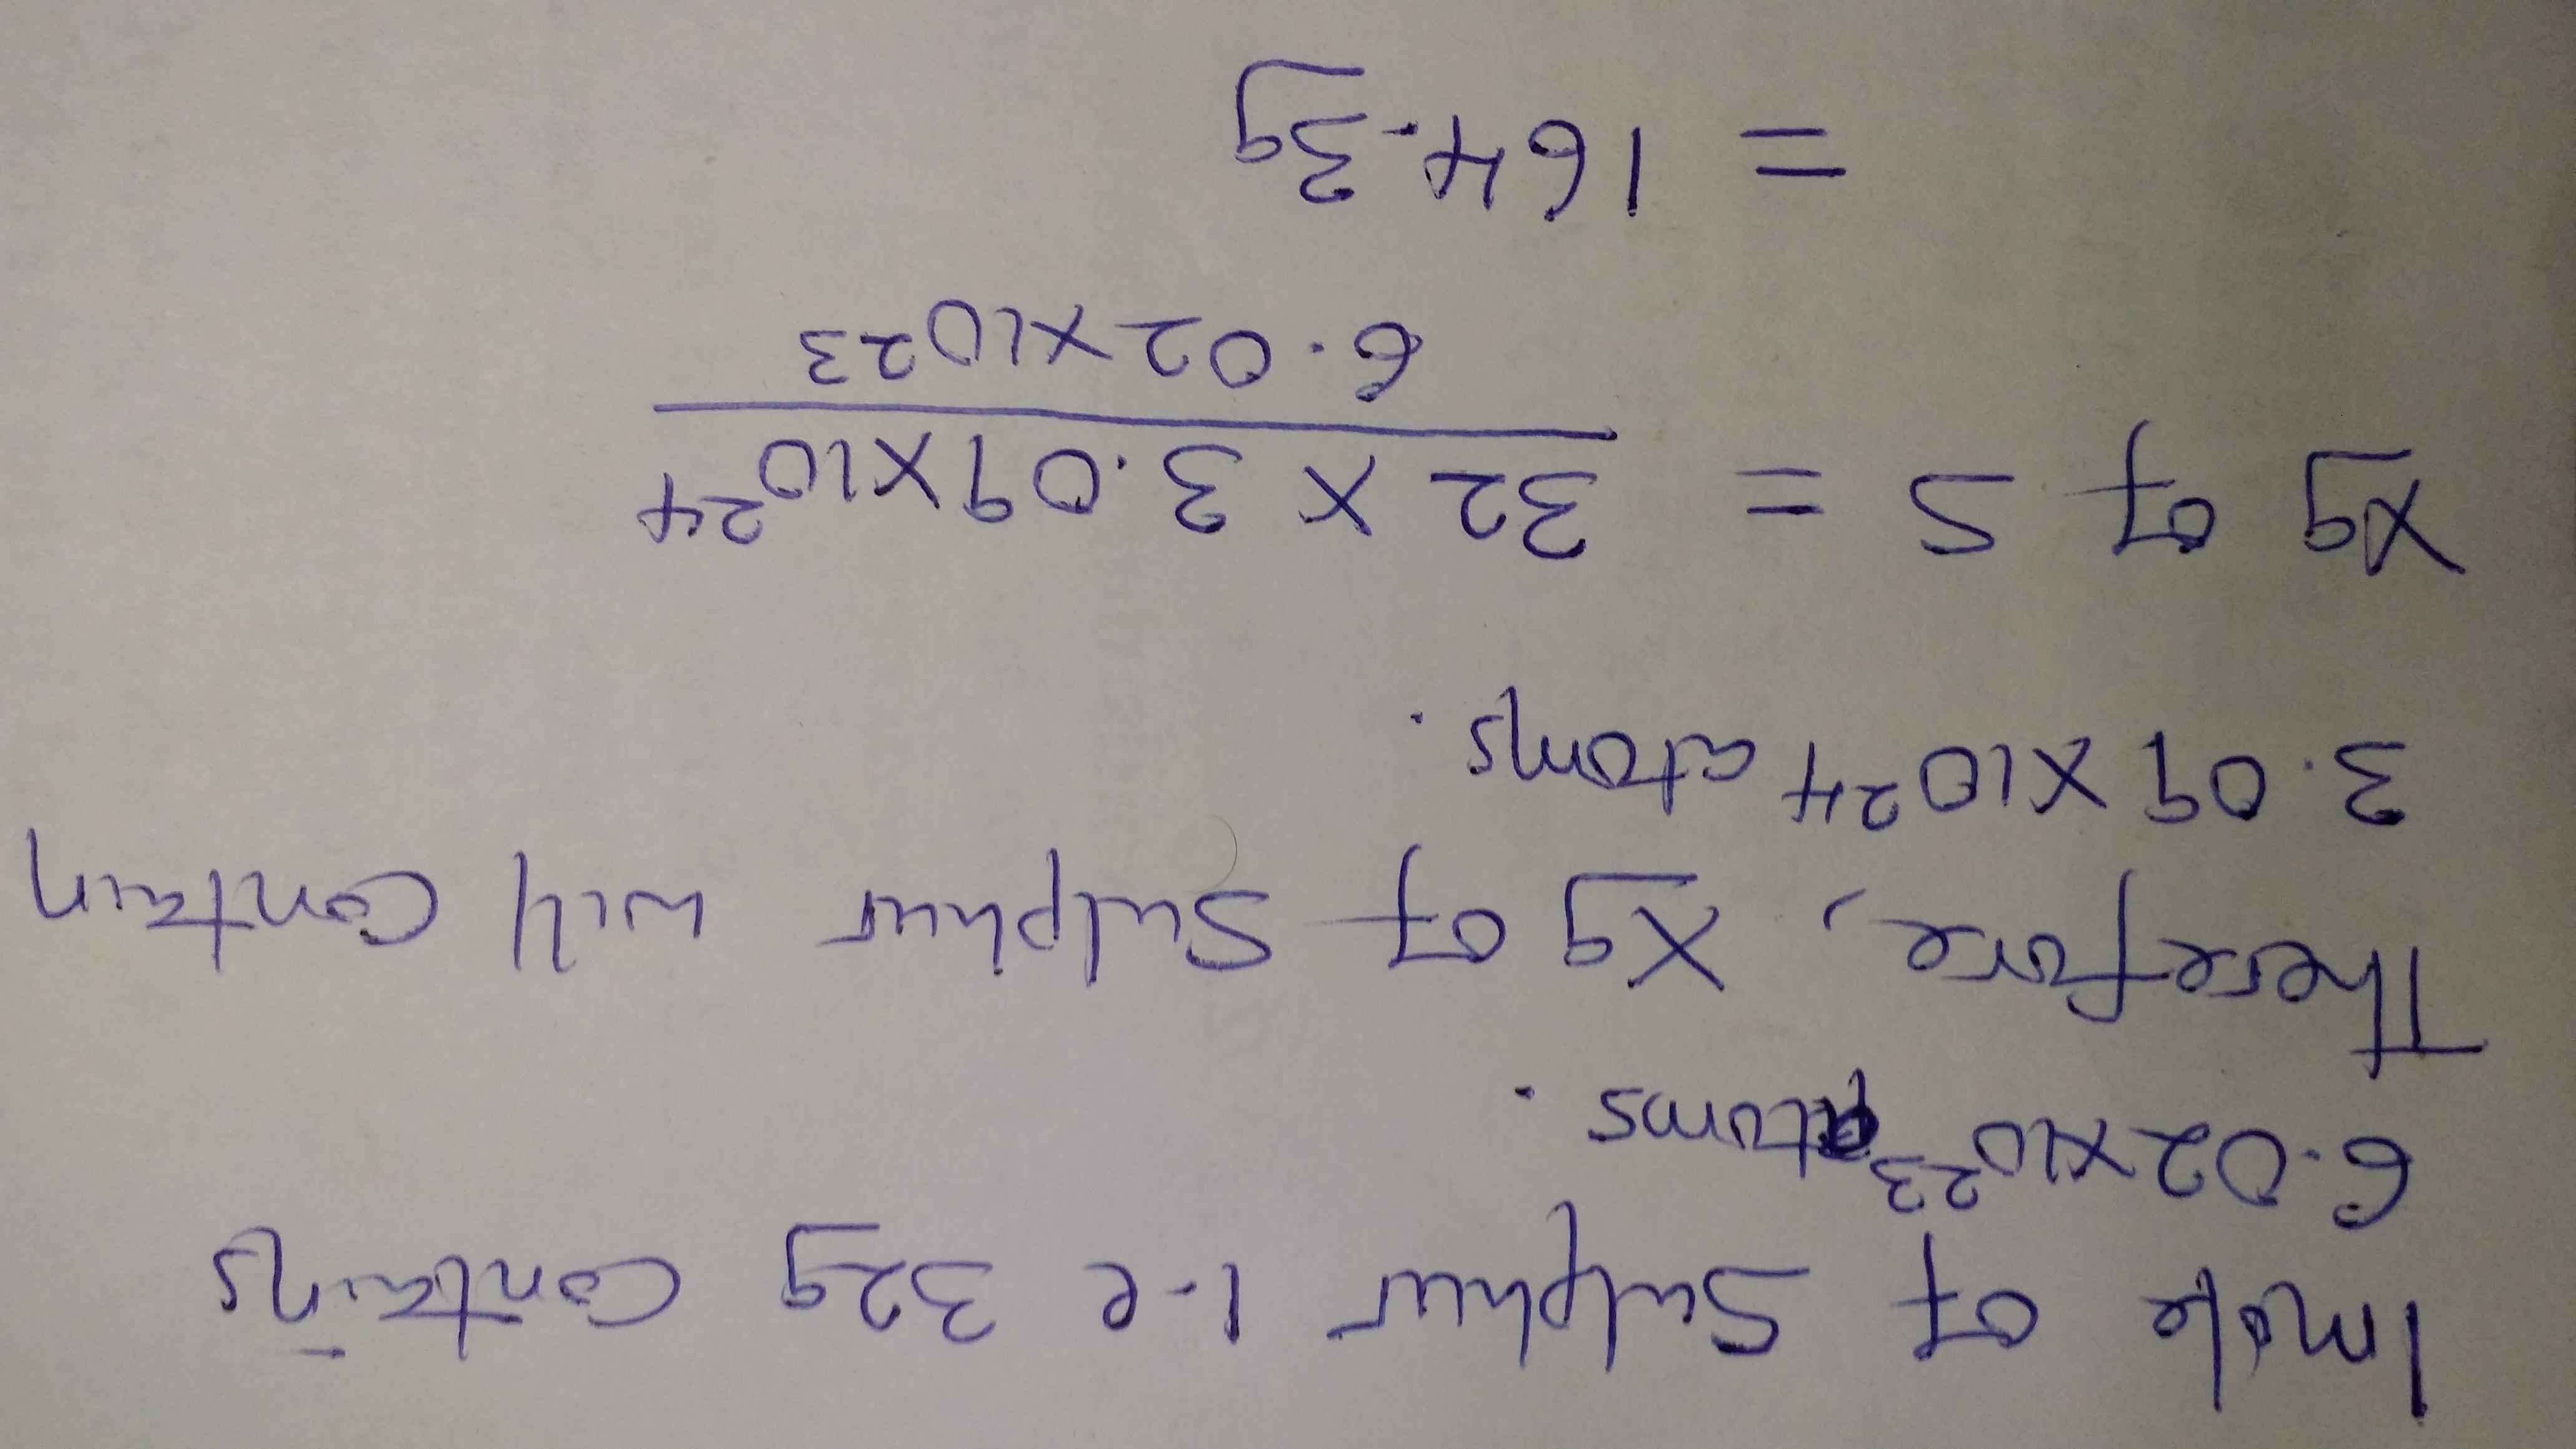 1mole of Sulphur i.e 32g Contains
6.02x10²³ atoms.
Therefore, xg of Sulphur will Contain
3.09x10²⁴ atoms.
xg of S = 32 x 3.09x10²⁴
6.02x10²³
= 164.3g